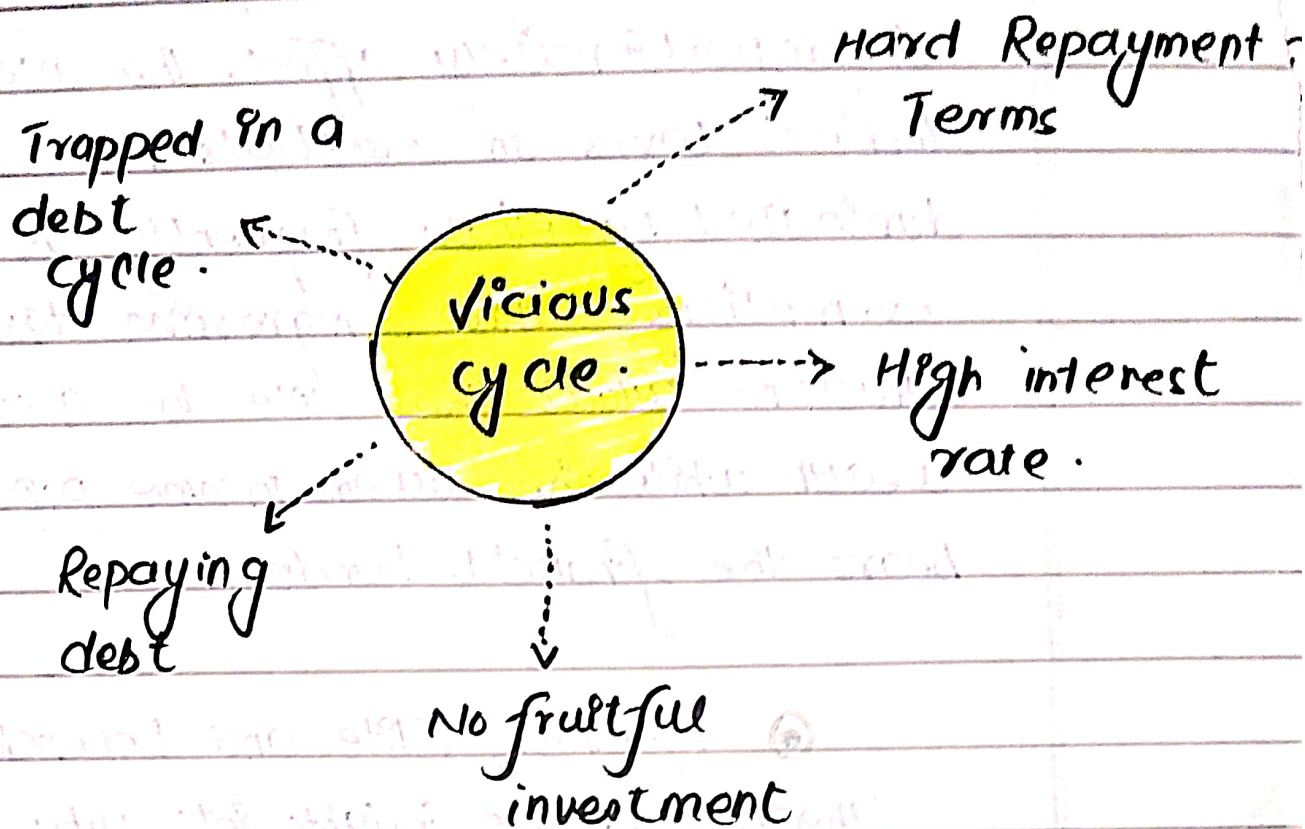 Hard Repayment
Terms
Trapped in a
debt
cycle.
Vicious
cycle.
High interest
rate.
Repaying
debt
No fruitful
investment